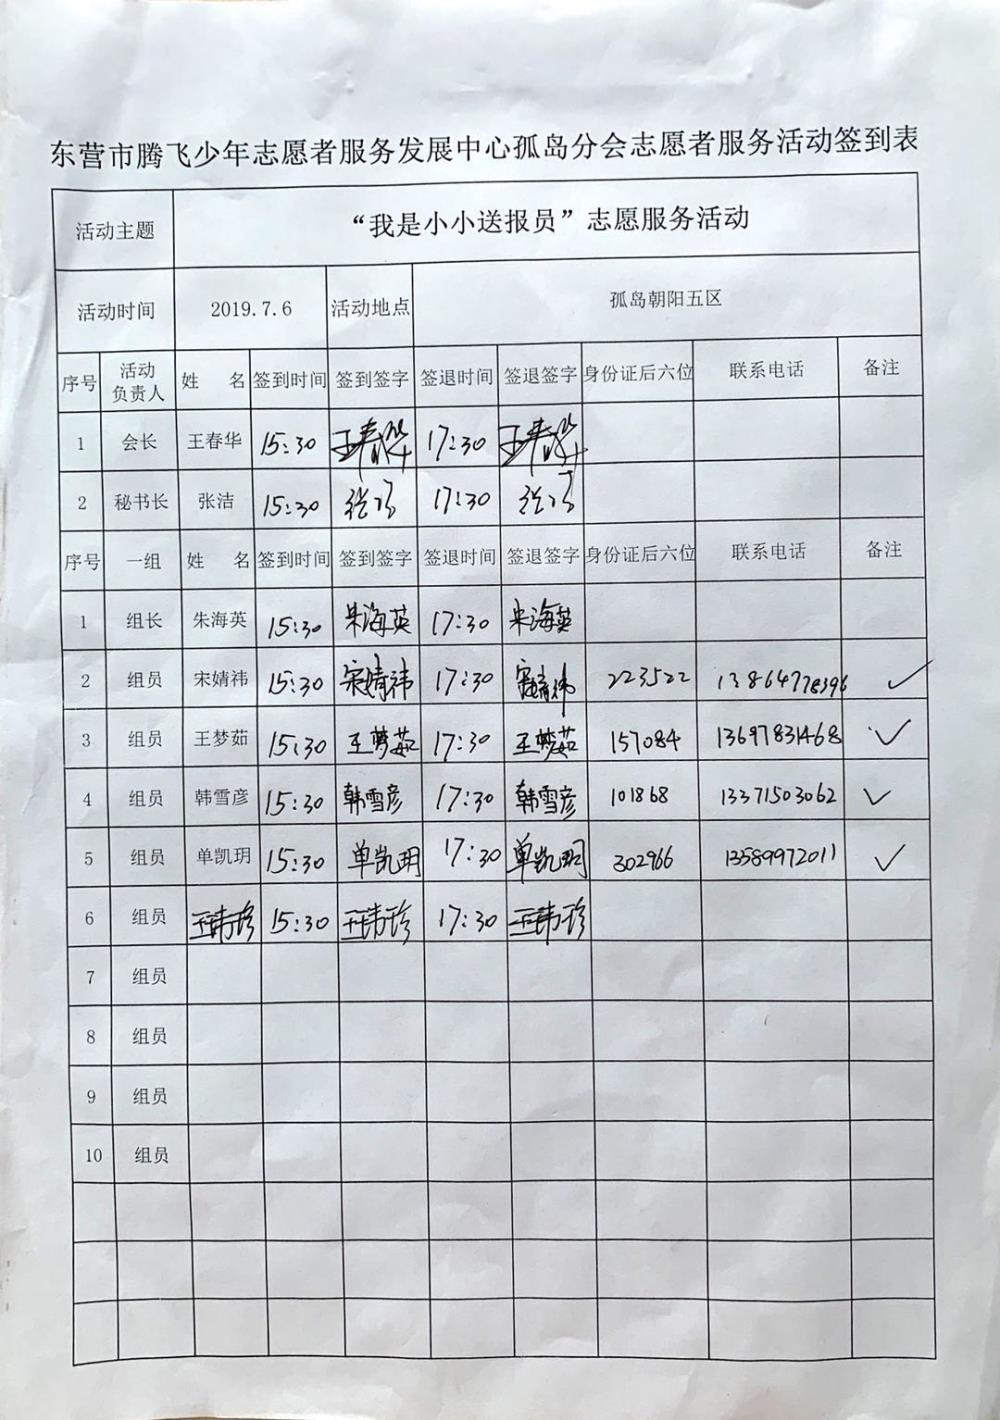 东营市腾飞少年志愿者服务发展中心孤岛分会志愿者服务活动签到表
活动主题 “我是小小送报员”志愿服务活动
活动时间 2019.7.6 活动地点 孤岛朝阳五区
序号 活动负责人 姓 名 签到时间 签到签字 签退时间 签退签字 身份证后六位 联系电话 备注
1 会长 王春华 15:30 王春华 17:30 王春华
2 秘书长 张洁 15:30 张洁 17:30 张洁
序号 一组 姓 名 签到时间 签到签字 签退时间 签退签字 身份证后六位 联系电话 备注
1 组长 朱海英 15:30 朱海英 17:30 朱海英
2 组员 宋婧祎 15:30 宋婧祎 17:30 宋婧祎 223522 13864778396 ✓
3 组员 王梦茹 15:30 王梦茹 17:30 王梦茹 157084 13697831468 ✓
4 组员 韩雪彦 15:30 韩雪彦 17:30 韩雪彦 101868 13371503062 ✓
5 组员 单凯玥 15:30 单凯玥 17:30 单凯玥 302966 13589972011 ✓
6 组员 王玮珍 15:30 王玮珍 17:30 王玮珍
7 组员
8 组员
9 组员
10 组员